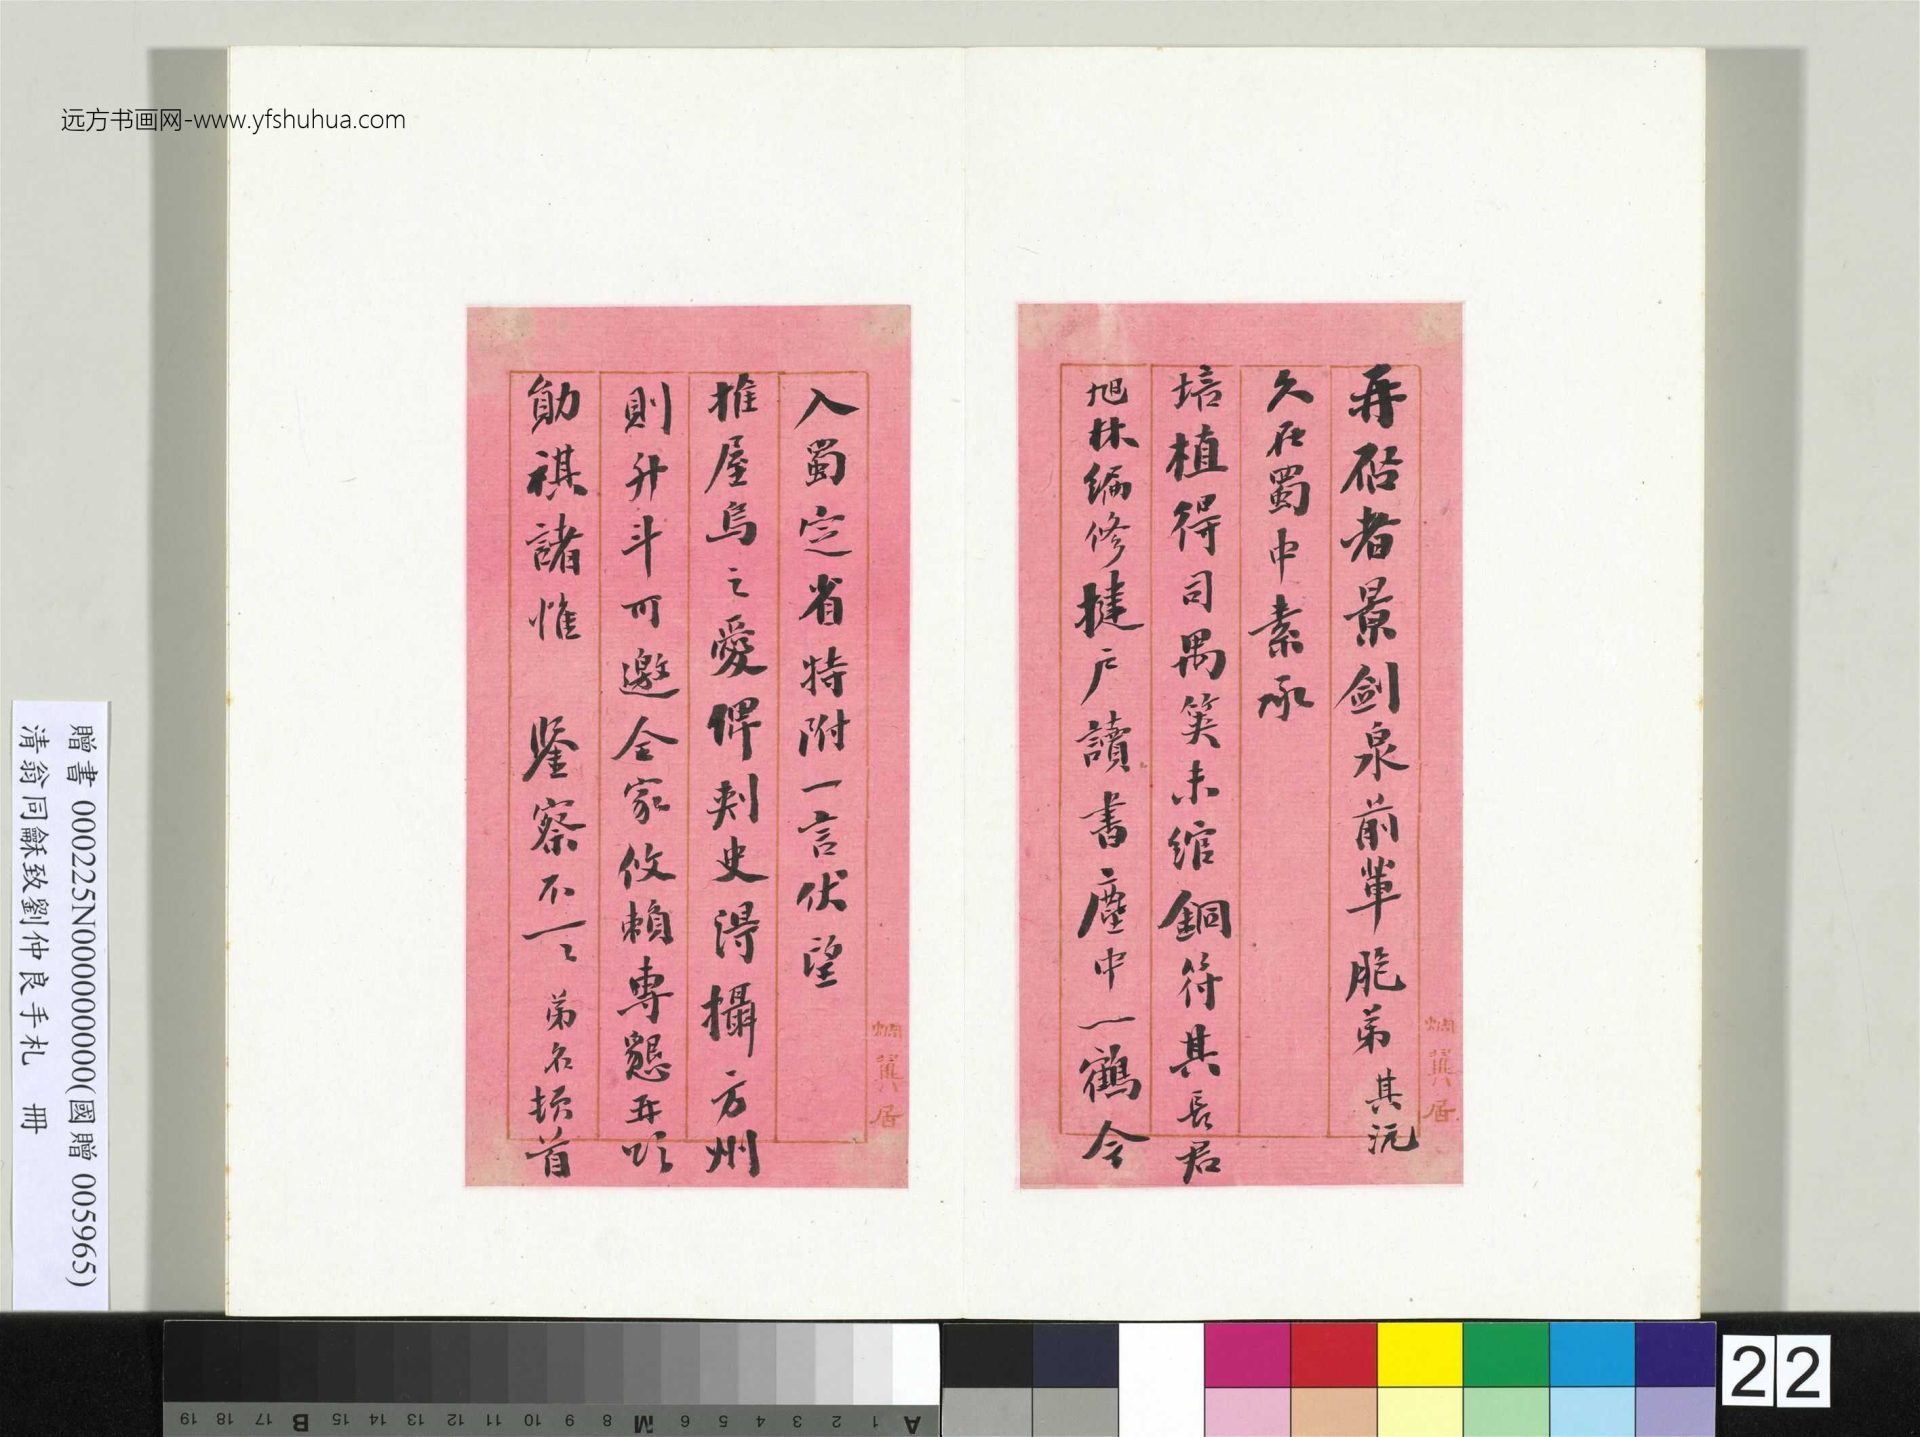 远方书画网-www.yfshuhua.com
再啓者景劍泉前輩胞弟其沅
久在蜀中素承
培植得司禺筴未綰銅符其長君
旭林編修揵户讀書塵中一鶴令
入蜀定省特附一言伏望
推屋烏之愛俾刺史得攝方州
則升斗可邀全家攸賴專懇再頌
勛祺諸惟 鑒察不一〻 弟名頓首
贈書 000225N000000000(國贈 005965)
清翁同龢致劉仲良手札 冊
A 1 2 3 4 5 6 M 8 9 10 11 12 13 14 15 B 17 18 19
22